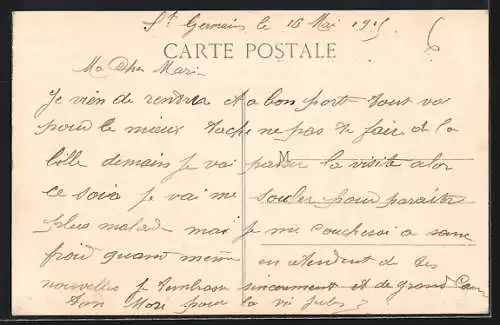 St Germain le 16 Mai 1915
6
CARTE POSTALE
Ma Cher Mari
Je vien de rentrer et a bon port tout va
pour le mieux tache ne pas te fair de la
bille demain je vai passer la visite alor
M
ce soir je vai me souler pour paraitre
plus malad mai je me coucherai a sans
froid quand meme en attendent de tes
nouvelles je tembrasse sincerement et de grand Coeur
ton Mari pour la vie Jules